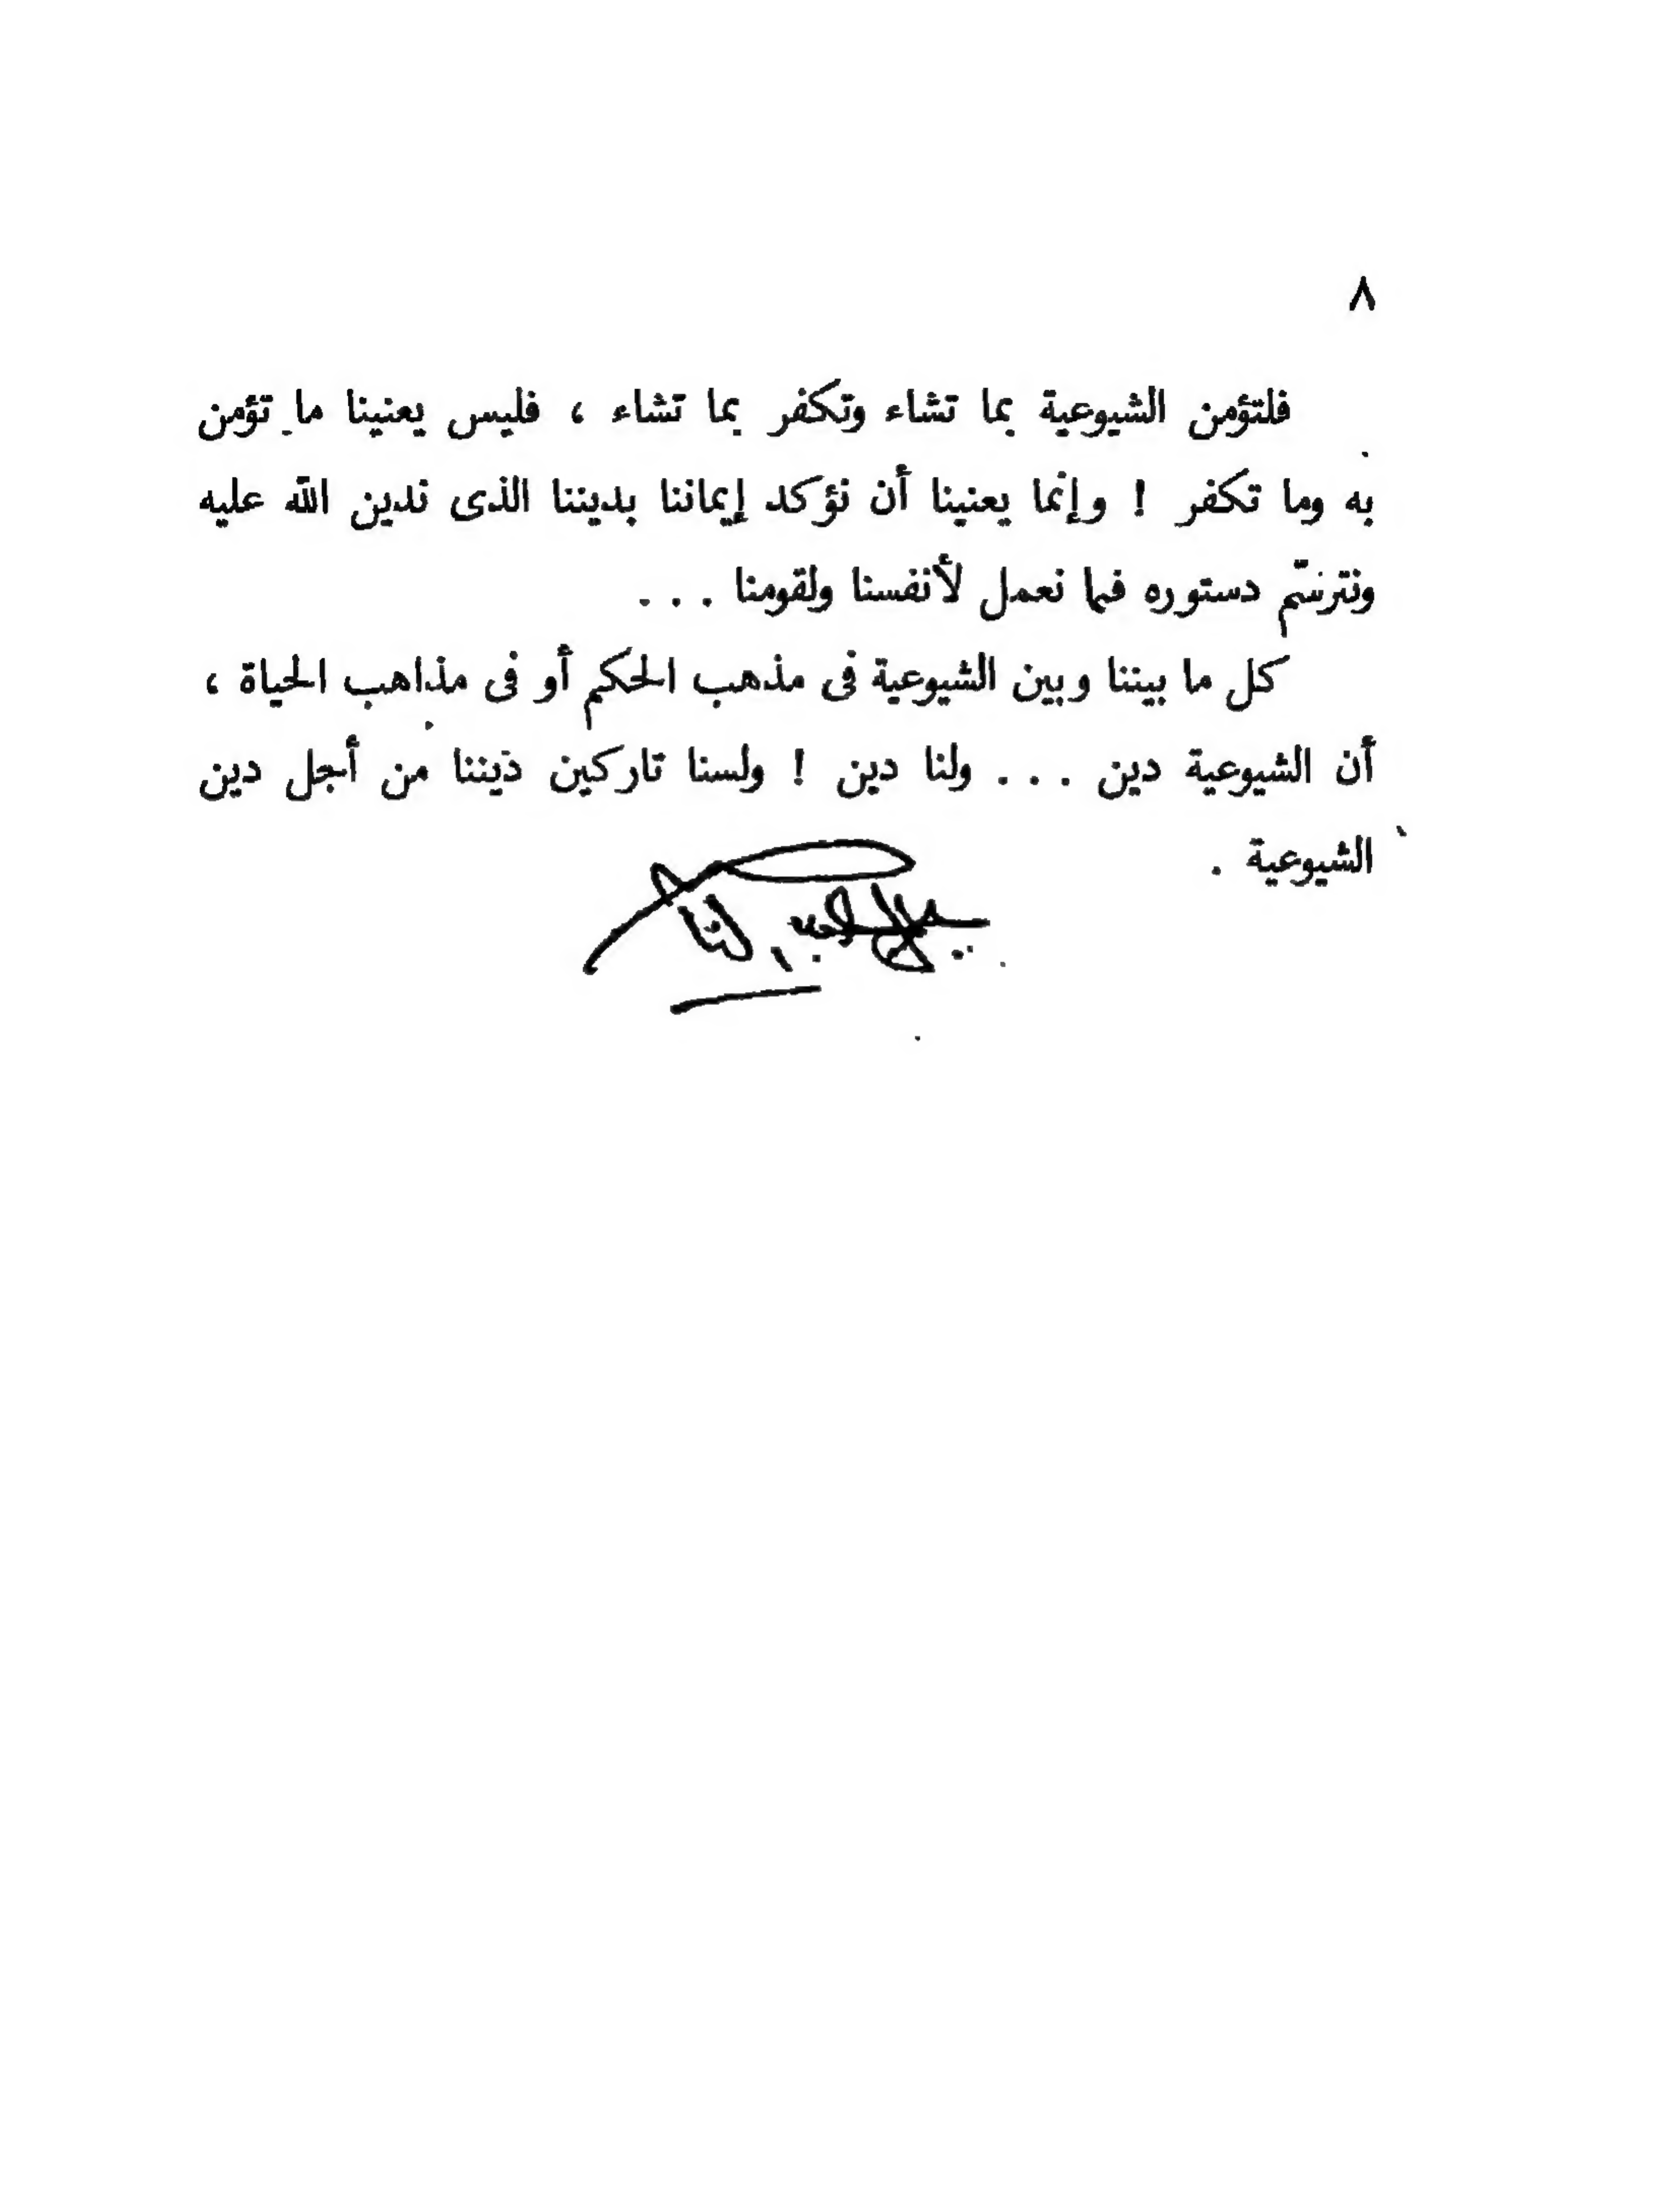 ٨
فلتؤمن الشيوعية بما تشاء وتكفر بما تشاء ، فليس يعنينا ما تؤمن
به وما تكفر ! وإنما يعنينا أن نؤكد إيماننا بديننا الذى ندين الله عليه
ونترسّم دستوره فيما نعمل لأنفسنا ولقومنا . . .
كل ما بيننا وبين الشيوعية فى مذهب الحكم أو فى مذاهب الحياة ،
أن الشيوعية دين . . . ولنا دين ! ولسنا تاركين ديننا من أجل دين
الشيوعية .